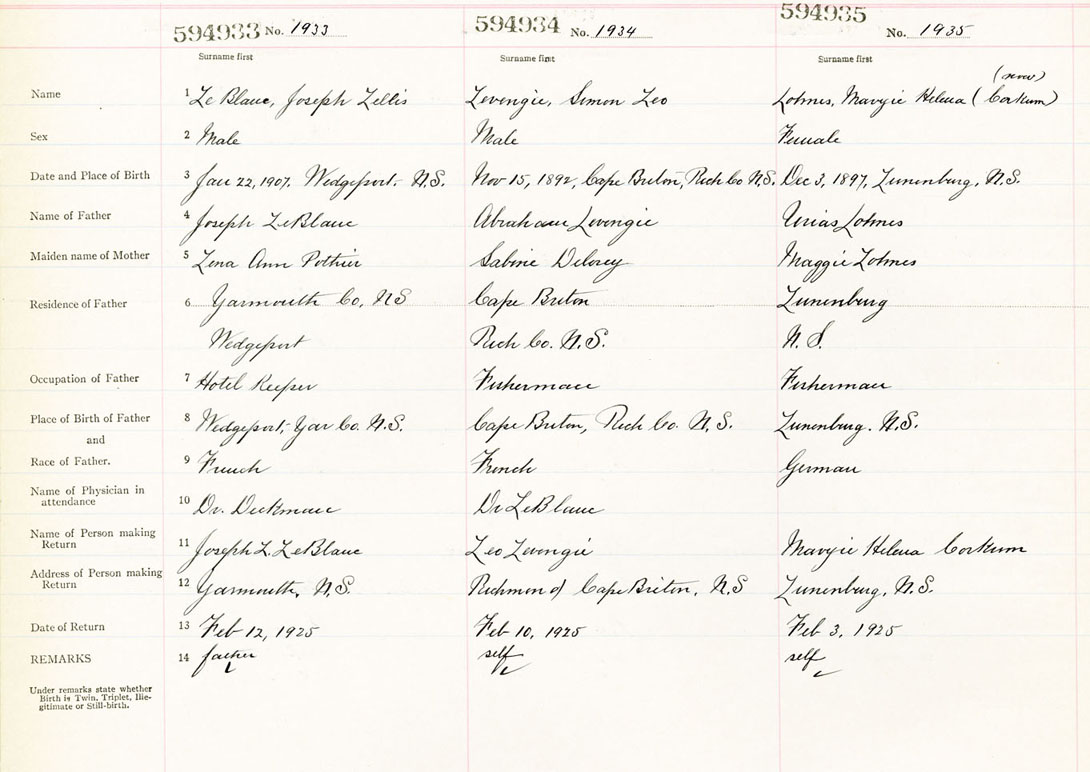 594933 No. 1933
594934 No. 1934
594935 No. 1935
Surname first
Surname first
Surname first
Name 1 LeBlanc, Joseph Zellis
Levengie, Simon Leo
Lohnes, Mavyie Helena (Corkum)
(now)
Sex 2 Male
Male
Female
Date and Place of Birth 3 Jan 22, 1907. Wedgeport. N.S.
Nov 15, 1892, Cape Breton, Rich Co N.S.
Dec 3, 1897, Lunenburg, N.S.
Name of Father 4 Joseph LeBlanc
Abraham Levengie
Urias Lohnes
Maiden name of Mother 5 Lena Ann Pothier
Sabine Delorey
Maggie Lohnes
Residence of Father 6 Yarmouth Co, NS
Wedgeport
Cape Breton
Rich Co. N.S.
Lunenburg
N.S.
Occupation of Father 7 Hotel Keeper
Fisherman
Fisherman
Place of Birth of Father 8 Wedgeport, Yar Co. N.S.
Cape Breton, Rich Co. N.S.
Lunenburg. N.S.
and
Race of Father. 9 French
French
German
Name of Physician in
attendance 10 Dr. Deckman
Dr LeBlanc
Name of Person making
Return 11 Joseph L. LeBlanc
Leo Levengie
Mavyie Helena Corkum
Address of Person making
Return 12 Yarmouth, N.S.
Richmond Cape Breton, N.S
Lunenburg, N.S.
Date of Return 13 Feb 12, 1925
Feb 10, 1925
Feb 3, 1925
REMARKS 14 father
self
self
Under remarks state whether
Birth is Twin, Triplet, Ille-
gitimate or Still-birth.